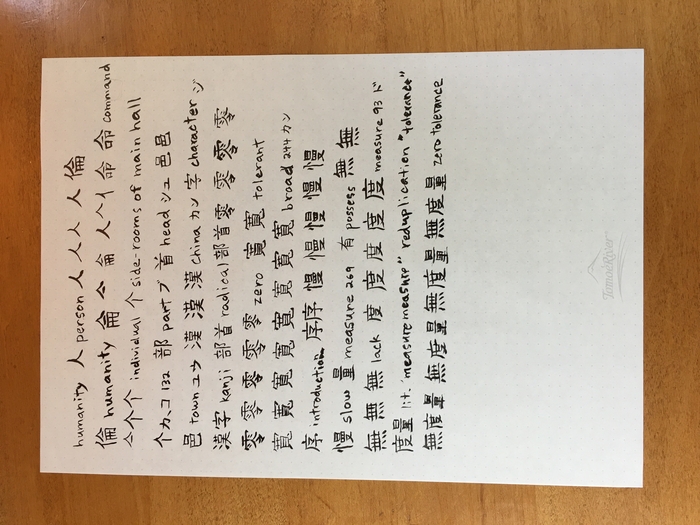 humanity 人 person 人 人 人 人 倫
倫 humanity 侖 亼 侖 人 𠆢 亻 命 命 command
亼 个 个 individual 个 side-rooms of main hall
个 カ、コ 132 部 part ブ 首 head シュ 邑 邑
邑 town ユウ 漢 漢 漢 China カン 字 character ジ
漢字 kanji 部首 radical 部首 零 零 零 零
零 零 零 零 零 zero 寛 寛 tolerant
寛 寛 寛 寛 寛 寛 寛 寛 broad 244 カン
序 introduction 序 序 慢 慢 慢 慢 慢
慢 slow 量 measure 269 有 possess 無 無
無 無 無 lack 度 度 度 度 度 measure 93 ド
度量 lit. "measure measure" reduplication "tolerance"
無度量 無度量 無度量 無度量 zero tolerance
Tomoe River